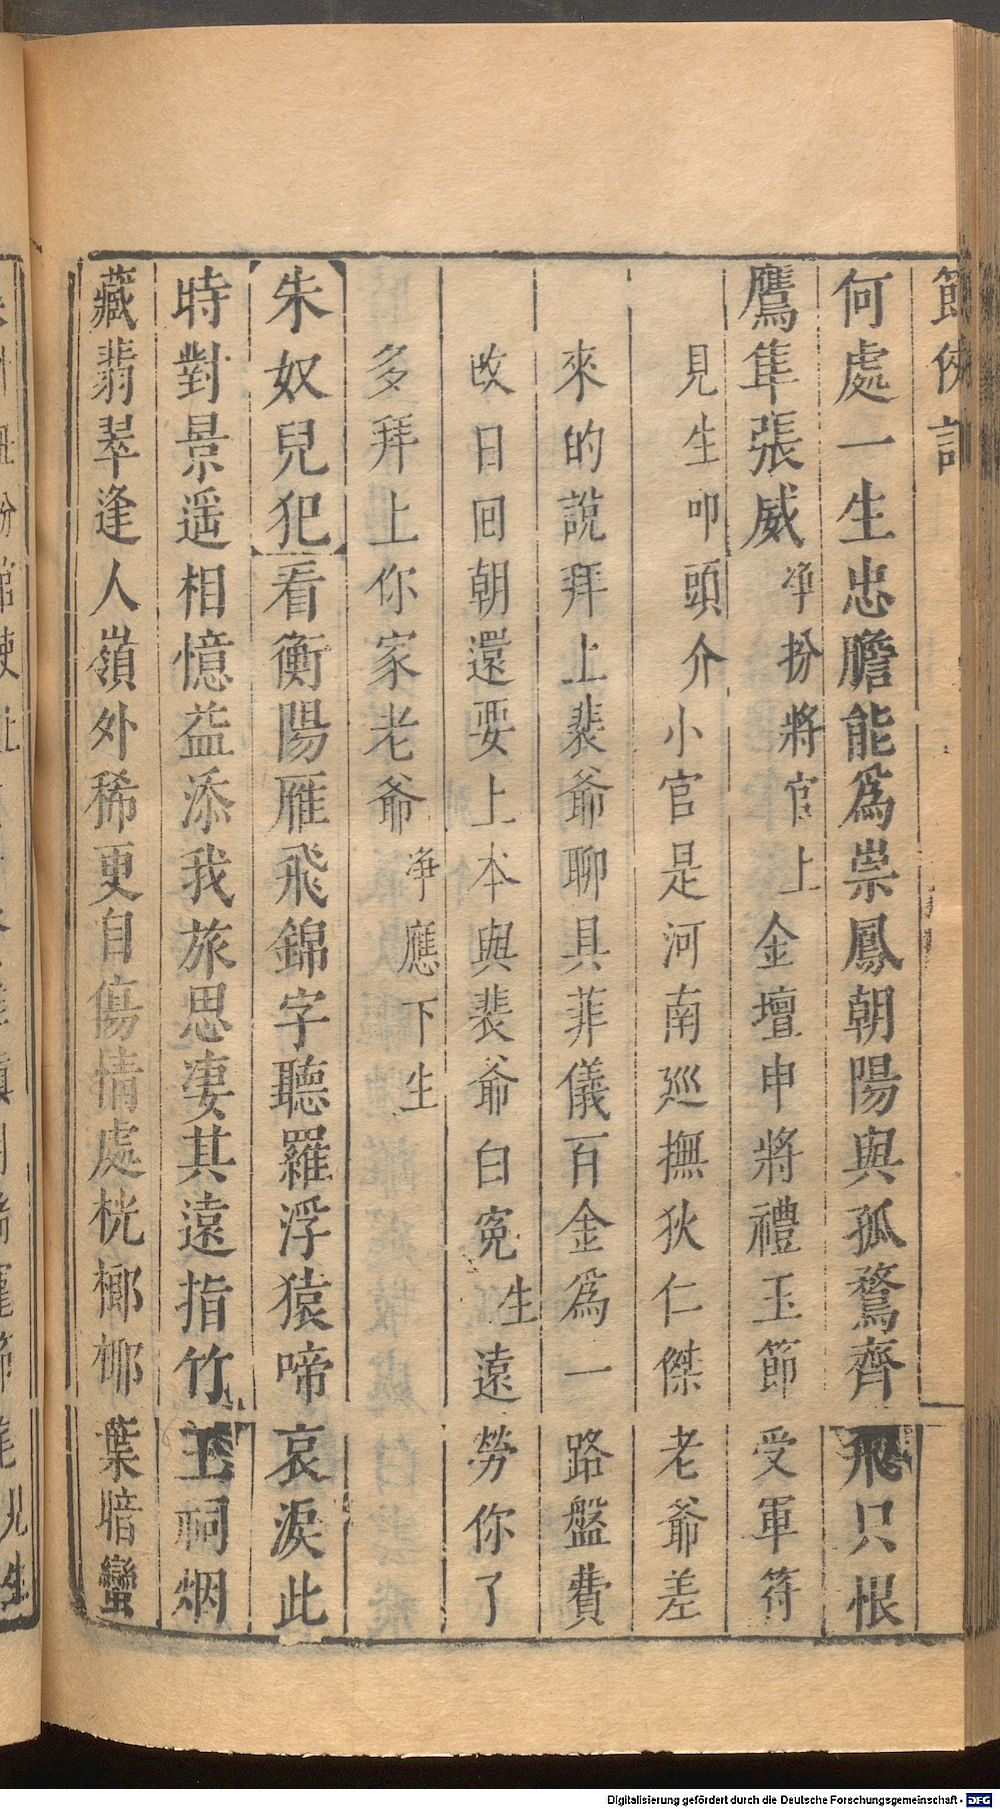 節俠記
何處一生忠膽能爲崇鳳朝陽與孤鶩齊飛只恨
鷹隼張威 净扮將官上 金壇申將禮玉節受軍符
見生叩頭介 小官是河南廵撫狄仁傑老爺差
來的説拜上裴爺聊具菲儀百金爲一路盤費
改日囘朝還要上本與裴爺白寃 生 遠勞你了
多拜上你家老爺 净應下生
朱奴兒犯 看衡陽雁飛錦字聽羅浮猿啼哀淚此
時對景遥相憶益添我旅思凄其遠指竹王祠烟
藏翡翠逢人嶺外稀更自傷情處桄榔柳葉暗蠻
Digitalisierung gefördert durch die Deutsche Forschungsgemeinschaft - DFG